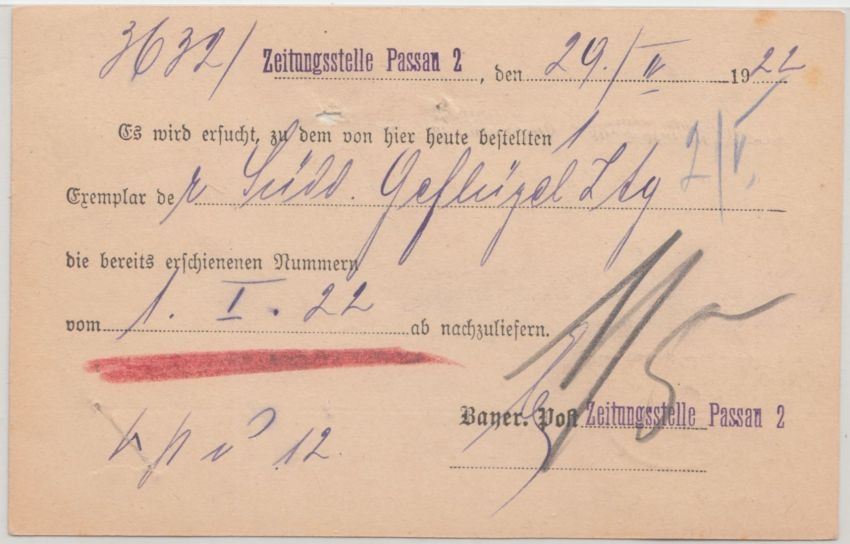 3632/ Zeitungsstelle Passau 2, den 29./II 1922
Es wird ersucht, zu dem von hier heute bestellten 1
Exemplar der Südd. Geflügel Ztg
2/V.
die bereits erschienenen Nummern
vom 1. I. 22 ab nachzuliefern.
1/5
Bayer. Post Zeitungsstelle Passau 2
12.